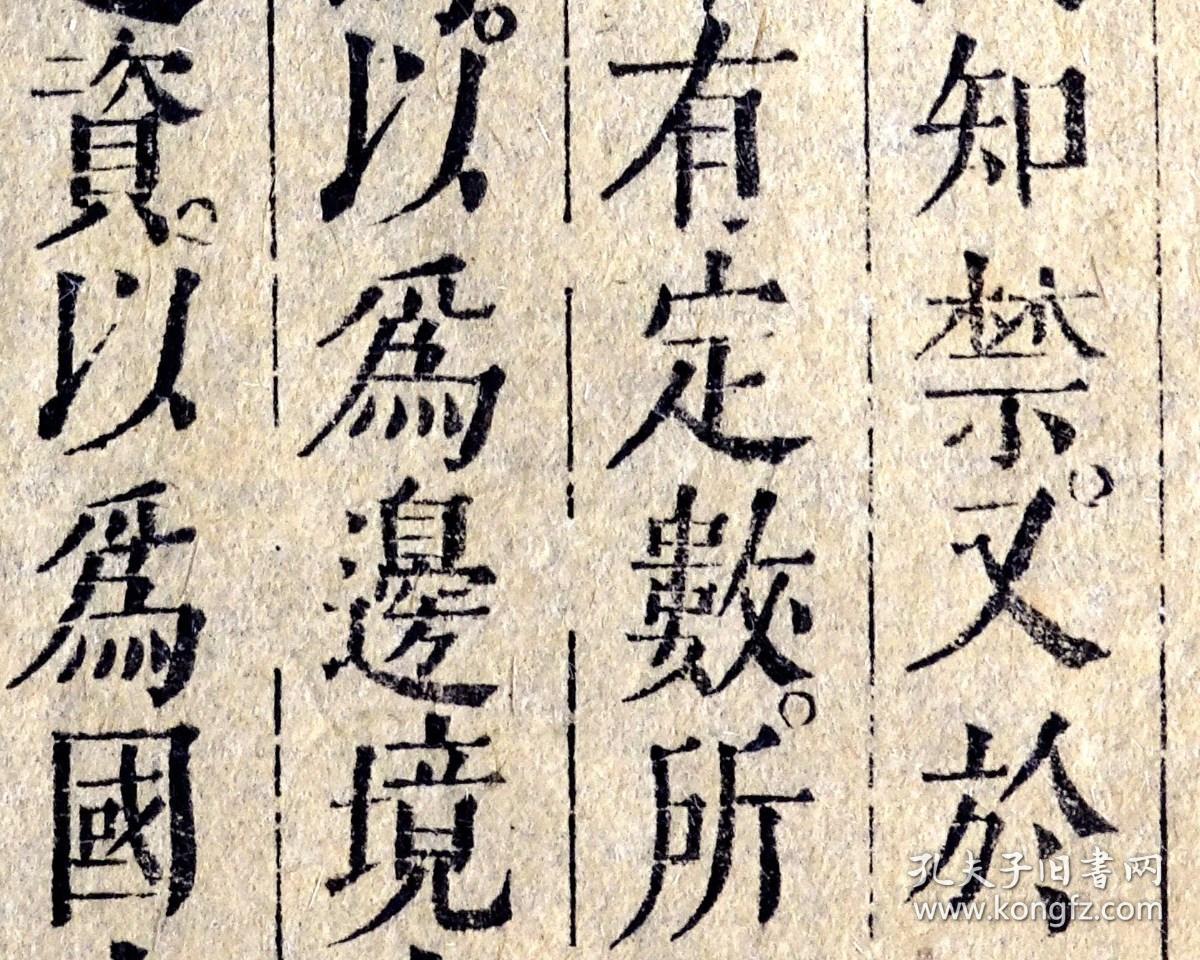 知禁。又於
有定數。所
以爲邊境
資。以爲國
孔夫子旧書网
www.kongfz.com